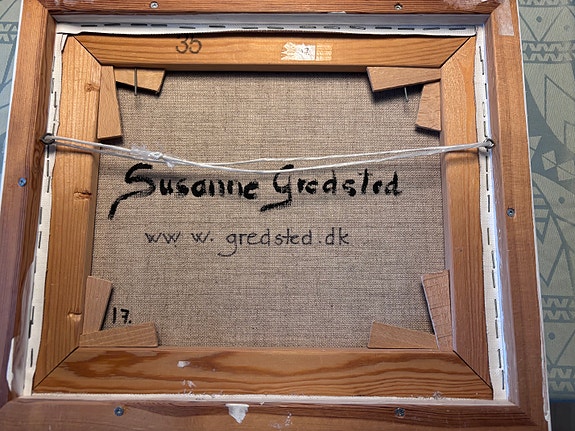 35
Susanne Gredsted
www.gredsted.dk
17.